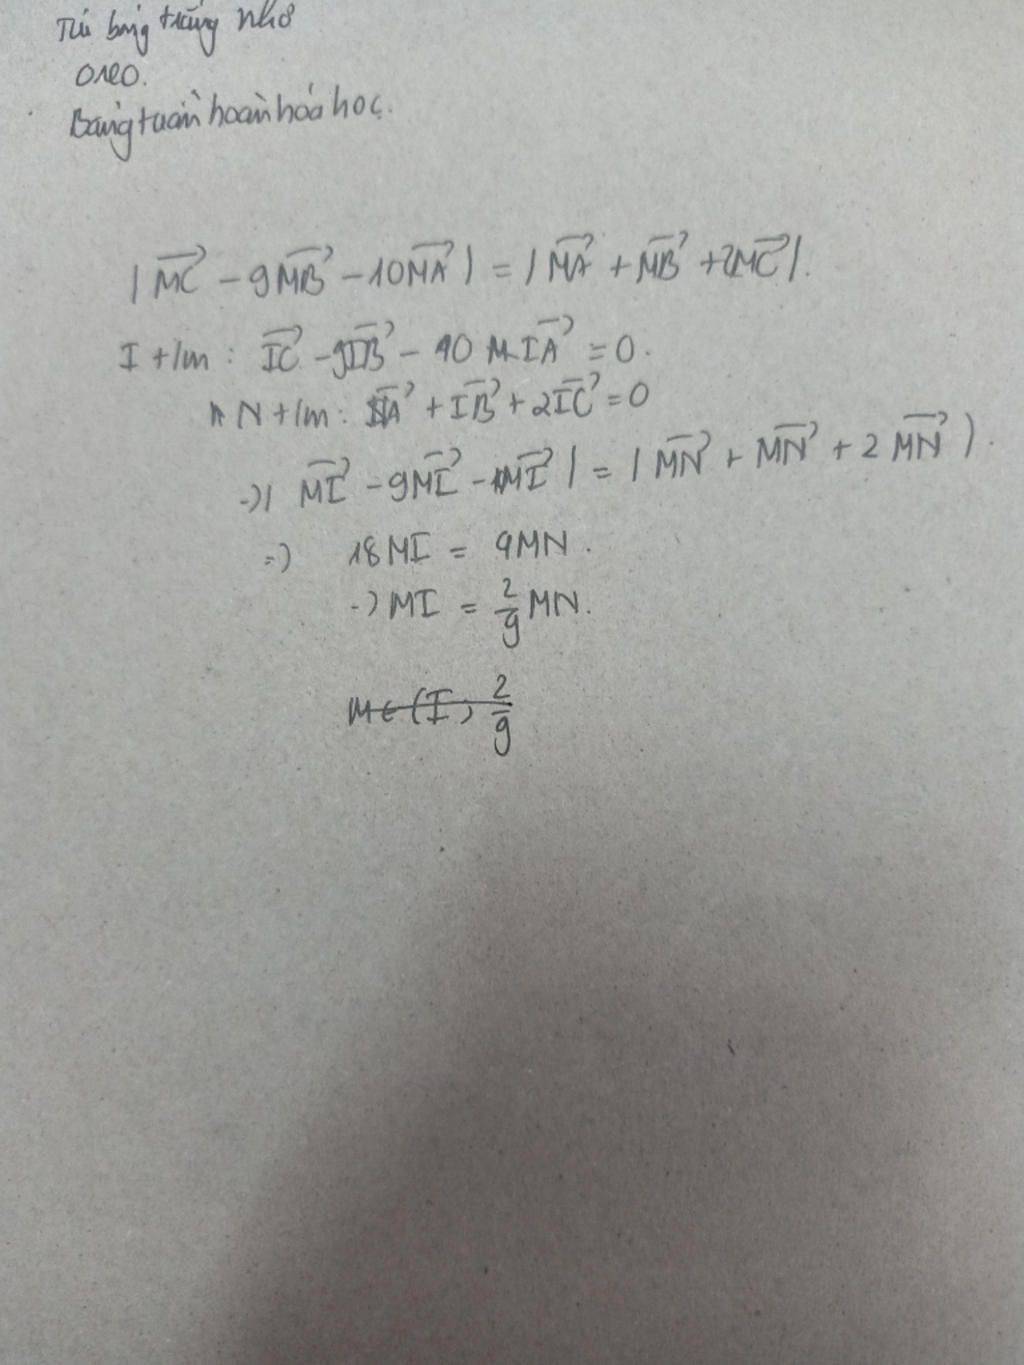 Túi bóng trắng nhỏ
oreo.
Bảng tuần hoàn hóa học.
|MC⃗ - 9MB⃗ - 10MA⃗| = |MA⃗ + MB⃗ + 2MC⃗|.
I t/m : IC⃗ - 9IB⃗ - 10 IA⃗ = 0.
N t/m : NA⃗ + IB⃗ + 2IC⃗ = 0
→| MI⃗ - 9MI⃗ - 10MI⃗ | = | MN⃗ + MN⃗ + 2 MN⃗ ).
=) 18MI = 4MN.
→ MI = 2/9 MN.
M∈(I; 2/9